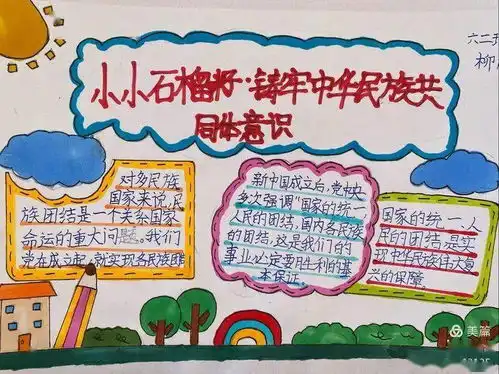 小小石榴籽··铸牢中华民族共
同体意识
六二
柳
对多民族
国家来说,民
族团结是一个关系国家
命运的重大问题。我们
党在成立起,就实现各民族团
新中国成立后,党中央
多次强调"国家的统一,
人民的团结,国内各民族
的团结,这是我们的
事业必定要胜利的基
本保证。
国家的统一,人
民的团结是实
现中华民族伟大复
兴的保障。
美篇